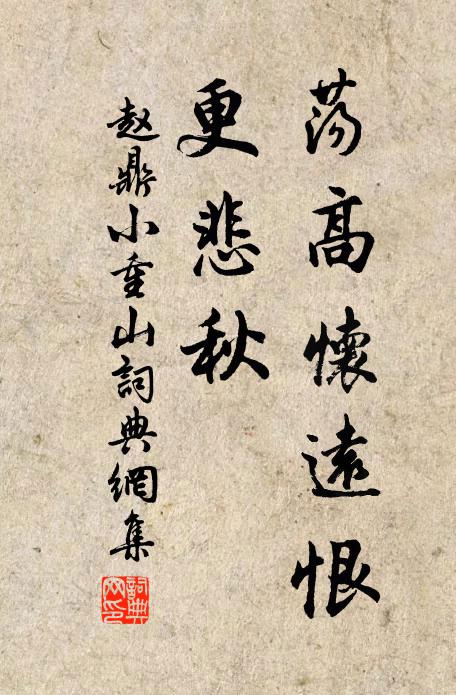 荡高懷遠恨
更悲秋
赵鼎小重山詞典網集
詞典網印